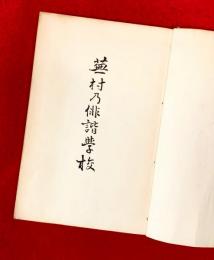 蕪村乃俳諧學校